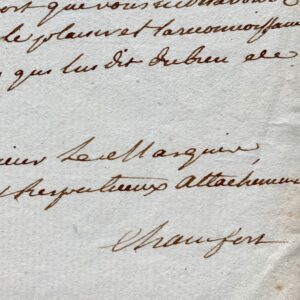 ort que vous
le plaisir et la reconnoissan
que lui dit du bien de
sieur Le Marquis,
respectueux attachemen
Chamfort